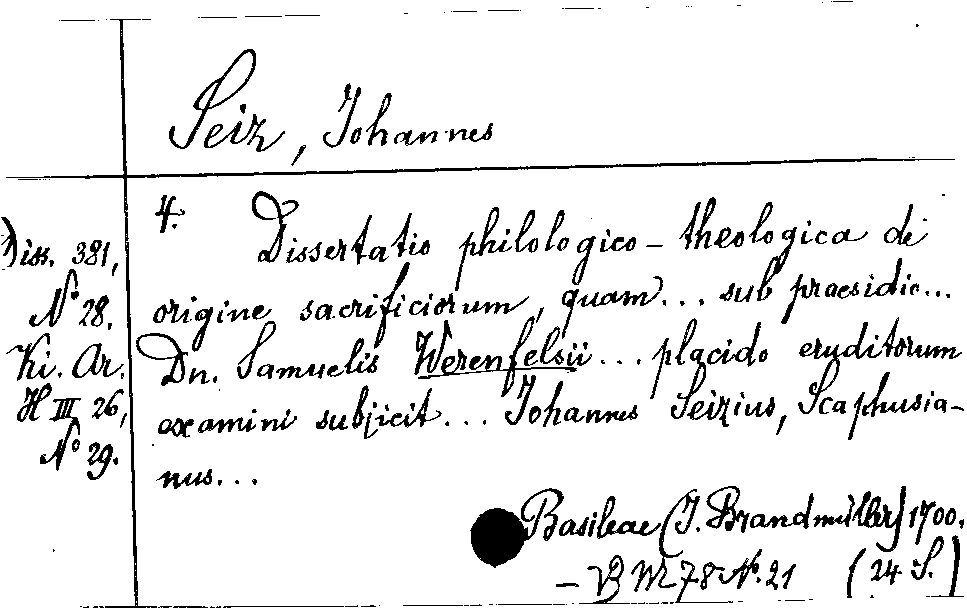 Seiz, Johannes
4. Dissertatio philologico-theologica de
origine sacrificiorum, quam... sub praesidio...
Dn. Samuelis Werenfelsii... placido eruditorum
examini subjicit... Johannes Seizius, Scaphusia-
nus...
Diss. 381,
No 28.
Ki. Ar.
H III 26,
No 29.
Basileae (J. Brandmüller) 1700.
– VB M 78 No. 21 (24 S.)